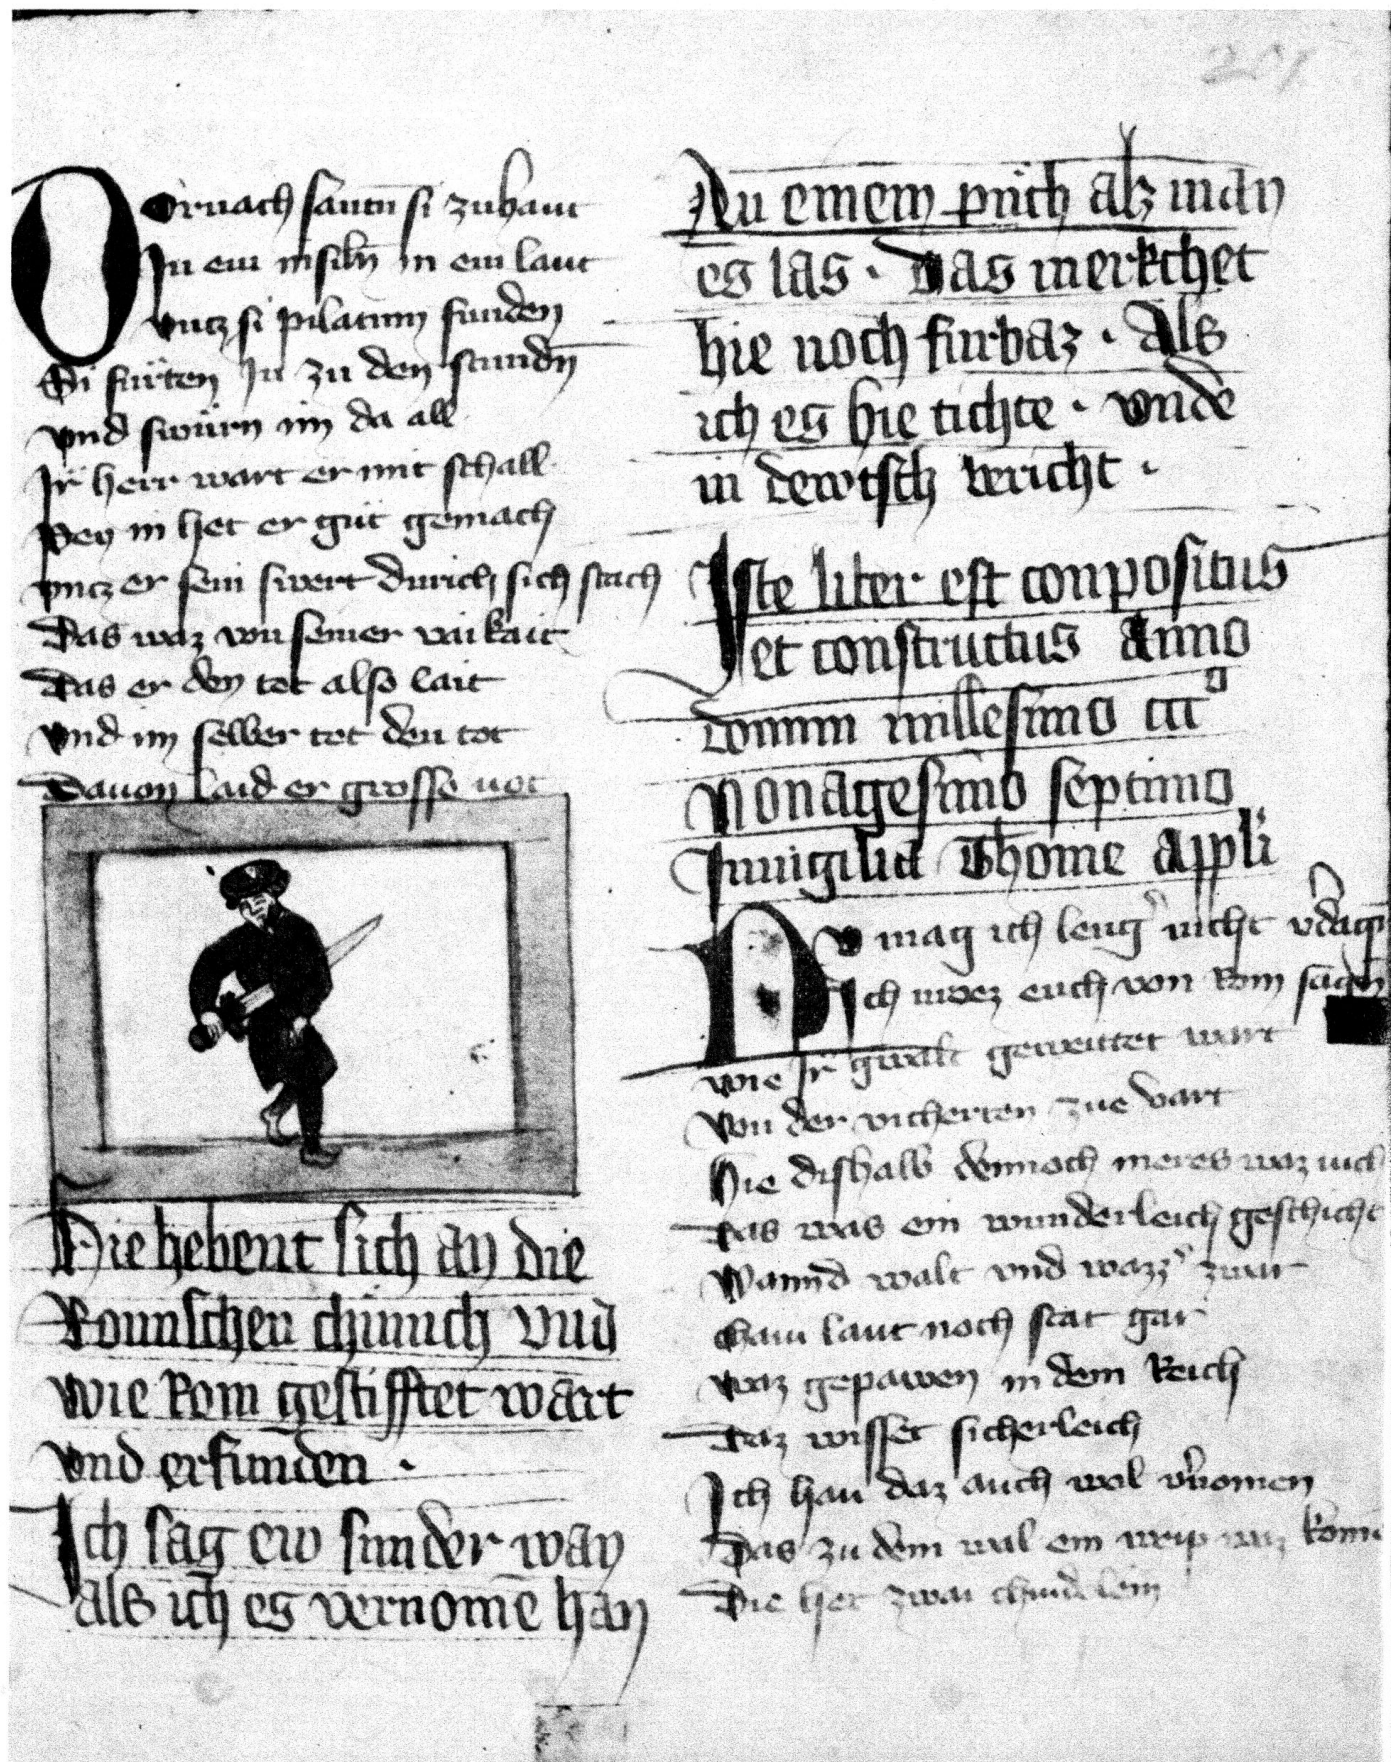 Dornach santn si zuhant
In ein insiln in ein lant
vntz si pilatum funden
Si fürten In zu den stundn
vnd swürn im da all
Ir herr wart er mit schall
Bey in het er güt gemach
vntz er sein swert durich sich stach
Das waz von seiner vaikait
Das er den tot also lait
vnd im selber tet den tot
Dauon laid er grosse not
Hie hebent sich an die
Romischen chünich vnd
wie Rom gestifftet wart
vnd erfunden ·
Ich sag ew sunder wan
als ich es vernomē han
An einem püch alz man
es las · Das merkchet
hie noch furbaz · Als
ich es hie tichte · vnde
in dewtsch vericht ·
Iste liber est conpositus
et constructus Anno
domini millesimo ccco
Nonagesimo septimo
In uigilia Thome appli
Nv mag ich leng' nicht v'dagn
Ich muez euch von Rom sagn
wie Ir gwalt geweittet wart
Von der vicherten zue vart
Hie dishalb dennoch meres waz nich
Das was ein wunderleich geschicht
Wannd walt vnd wazz' zwar
cham lant noch stat gar
waz gepawen in dem Reich
Daz wisset sicherleich
Ich han daz auch wol v'nomen
Das zu dem mal ein weip waz komē
Die het zwai chindelein
201